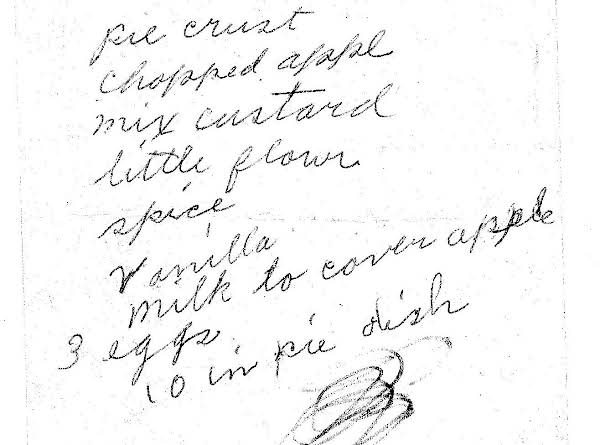 pie crust
chopped apple
mix custard
little flour
spice
Vanilla
milk to cover apple
3 eggs
10 in pie dish